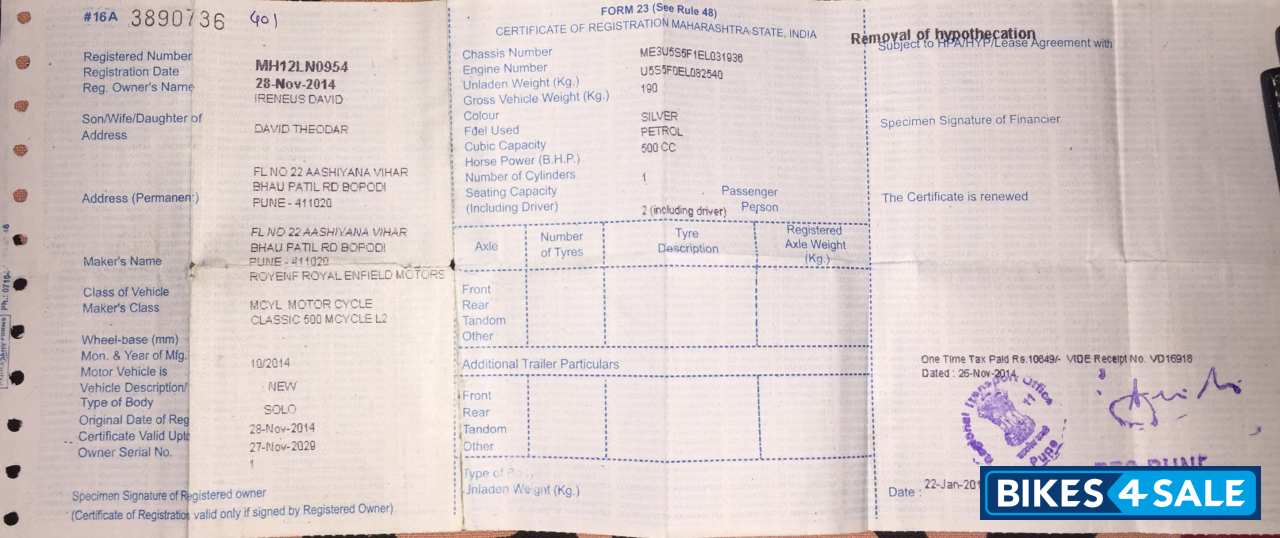 #16A 3890736 401
Registered Number MH12LN0954
Registration Date 28-Nov-2014
Reg. Owner's Name IRENEUS DAVID
Son/Wife/Daughter of DAVID THEODAR
Address
FL NO 22 AASHIYANA VIHAR
BHAU PATIL RD BOPODI
Address (Permanent) PUNE - 411020
FL NO 22 AASHIYANA VIHAR
BHAU PATIL RD BOPODI
PUNE - 411020
Maker's Name ROYENF ROYAL ENFIELD MOTORS
Class of Vehicle MCYL MOTOR CYCLE
Maker's Class CLASSIC 500 MCYCLE L2
Wheel-base (mm)
Mon. & Year of Mfg. 10/2014
Motor Vehicle is NEW
Vehicle Description/
Type of Body SOLO
Original Date of Reg 28-Nov-2014
Certificate Valid Upto 27-Nov-2029
Owner Serial No. 1
Specimen Signature of Registered owner
(Certificate of Registration valid only if signed by Registered Owner)
FORM 23 (See Rule 48)
CERTIFICATE OF REGISTRATION MAHARASHTRA STATE, INDIA
Chassis Number ME3U5S5F1EL031936
Engine Number U5S5F0EL082540
Unladen Weight (Kg.) 190
Gross Vehicle Weight (Kg.)
Colour SILVER
Fuel Used PETROL
Cubic Capacity 500 CC
Horse Power (B.H.P.)
Number of Cylinders 1
Seating Capacity Passenger
(Including Driver) 2 (including driver) Person
Axle Number of Tyres Tyre Description Registered Axle Weight (Kg.)
Front
Rear
Tandom
Other
Additional Trailer Particulars
Front
Rear
Tandom
Other
Type of
Unladen Weight (Kg.)
Removal of hypothecation
Subject to HPA/HYP/Lease Agreement with
Specimen Signature of Financier
The Certificate is renewed
One Time Tax Paid Rs.10849/- VIDE Receipt No. VD16918
Dated : 26-Nov-2014
Regional Transport Office
Pune
Date : 22-Jan-201
BIKES4SALE